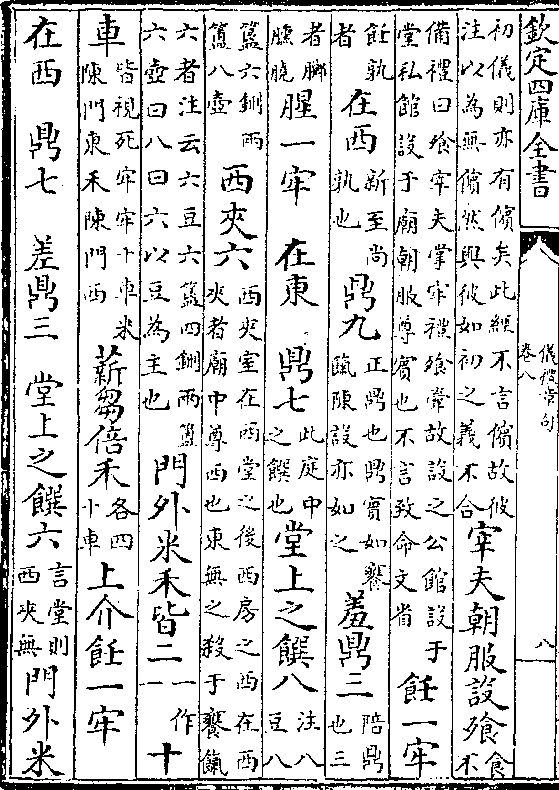 欽定四庫全書
儀禮章句
卷八
八
初儀則亦有儐矣此經不言儐故彼
注以為無儐然與彼如初之義不合
宰夫朝服設飧
食
不
備禮曰飧宰夫掌牢禮飧當故設之公館設于
堂私館設于廟朝服尊賓也不言致命文省
飪一牢
飪孰
者
在西
新至尚
孰也
鼎九
正鼎也鼎實如饔
餼陳設亦如之
羞鼎三
陪鼎
也三
者膷
臐膮
腥一牢 在東 鼎七
此庭中
之饌也
堂上之饌八
注八
豆八
簋六鉶兩
簠八壺
西夾六
西夾室在西堂之後西房之西在西
夾者廟中尊西也東無之殺于饔餼
六者注云六豆六簋四鉶兩簠
六壺曰八曰六以豆為主也
門外米禾皆二
一作
一
十
車
皆視死牢牢十車米
陳門東禾陳門西
薪芻倍禾
各四
十車
上介飪一牢
在西 鼎七 羞鼎三 堂上之饌六
言堂則
西夾無
門外米